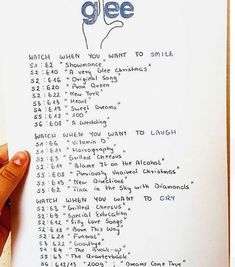 glee
WATCH WHEN YOU WANT TO SMILE
S1: E2 "Showmance"
S2: E10 "A very Glee Christmas"
S2: E16 "Original Song"
S2: E20 "Prom Queen"
S2: E22 "New York"
S3: E13 "Heart"
S4: E19 "Sweet Dreams"
S5: E12 "100"
S6: E08 "A Wedding"
WATCH WHEN YOU WANT TO LAUGH
S1: E6 "Vitamin D"
S1: E11 "Hairography"
S2: E3 "Grilled Cheesus"
S2: E14 "Blame it on the Alcohol"
S3: E08 "Previously Unaired Christmas"
S5: E13 "New Directions"
S5: E2 "Tina in the Sky with Diamonds"
WATCH WHEN YOU WANT TO CRY
S2: E3 "Grilled Cheesus"
S2: E9 "Special Education"
S2: E12 "Silly Love Songs"
S2: E18 "Born This Way"
S2: E21 "Funeral"
S3: E22 "Goodbye"
S4: E4 "The Break-up"
S5: E3 "The Quarterback"
S6: E12/13 "2009"; "Dreams Come True"